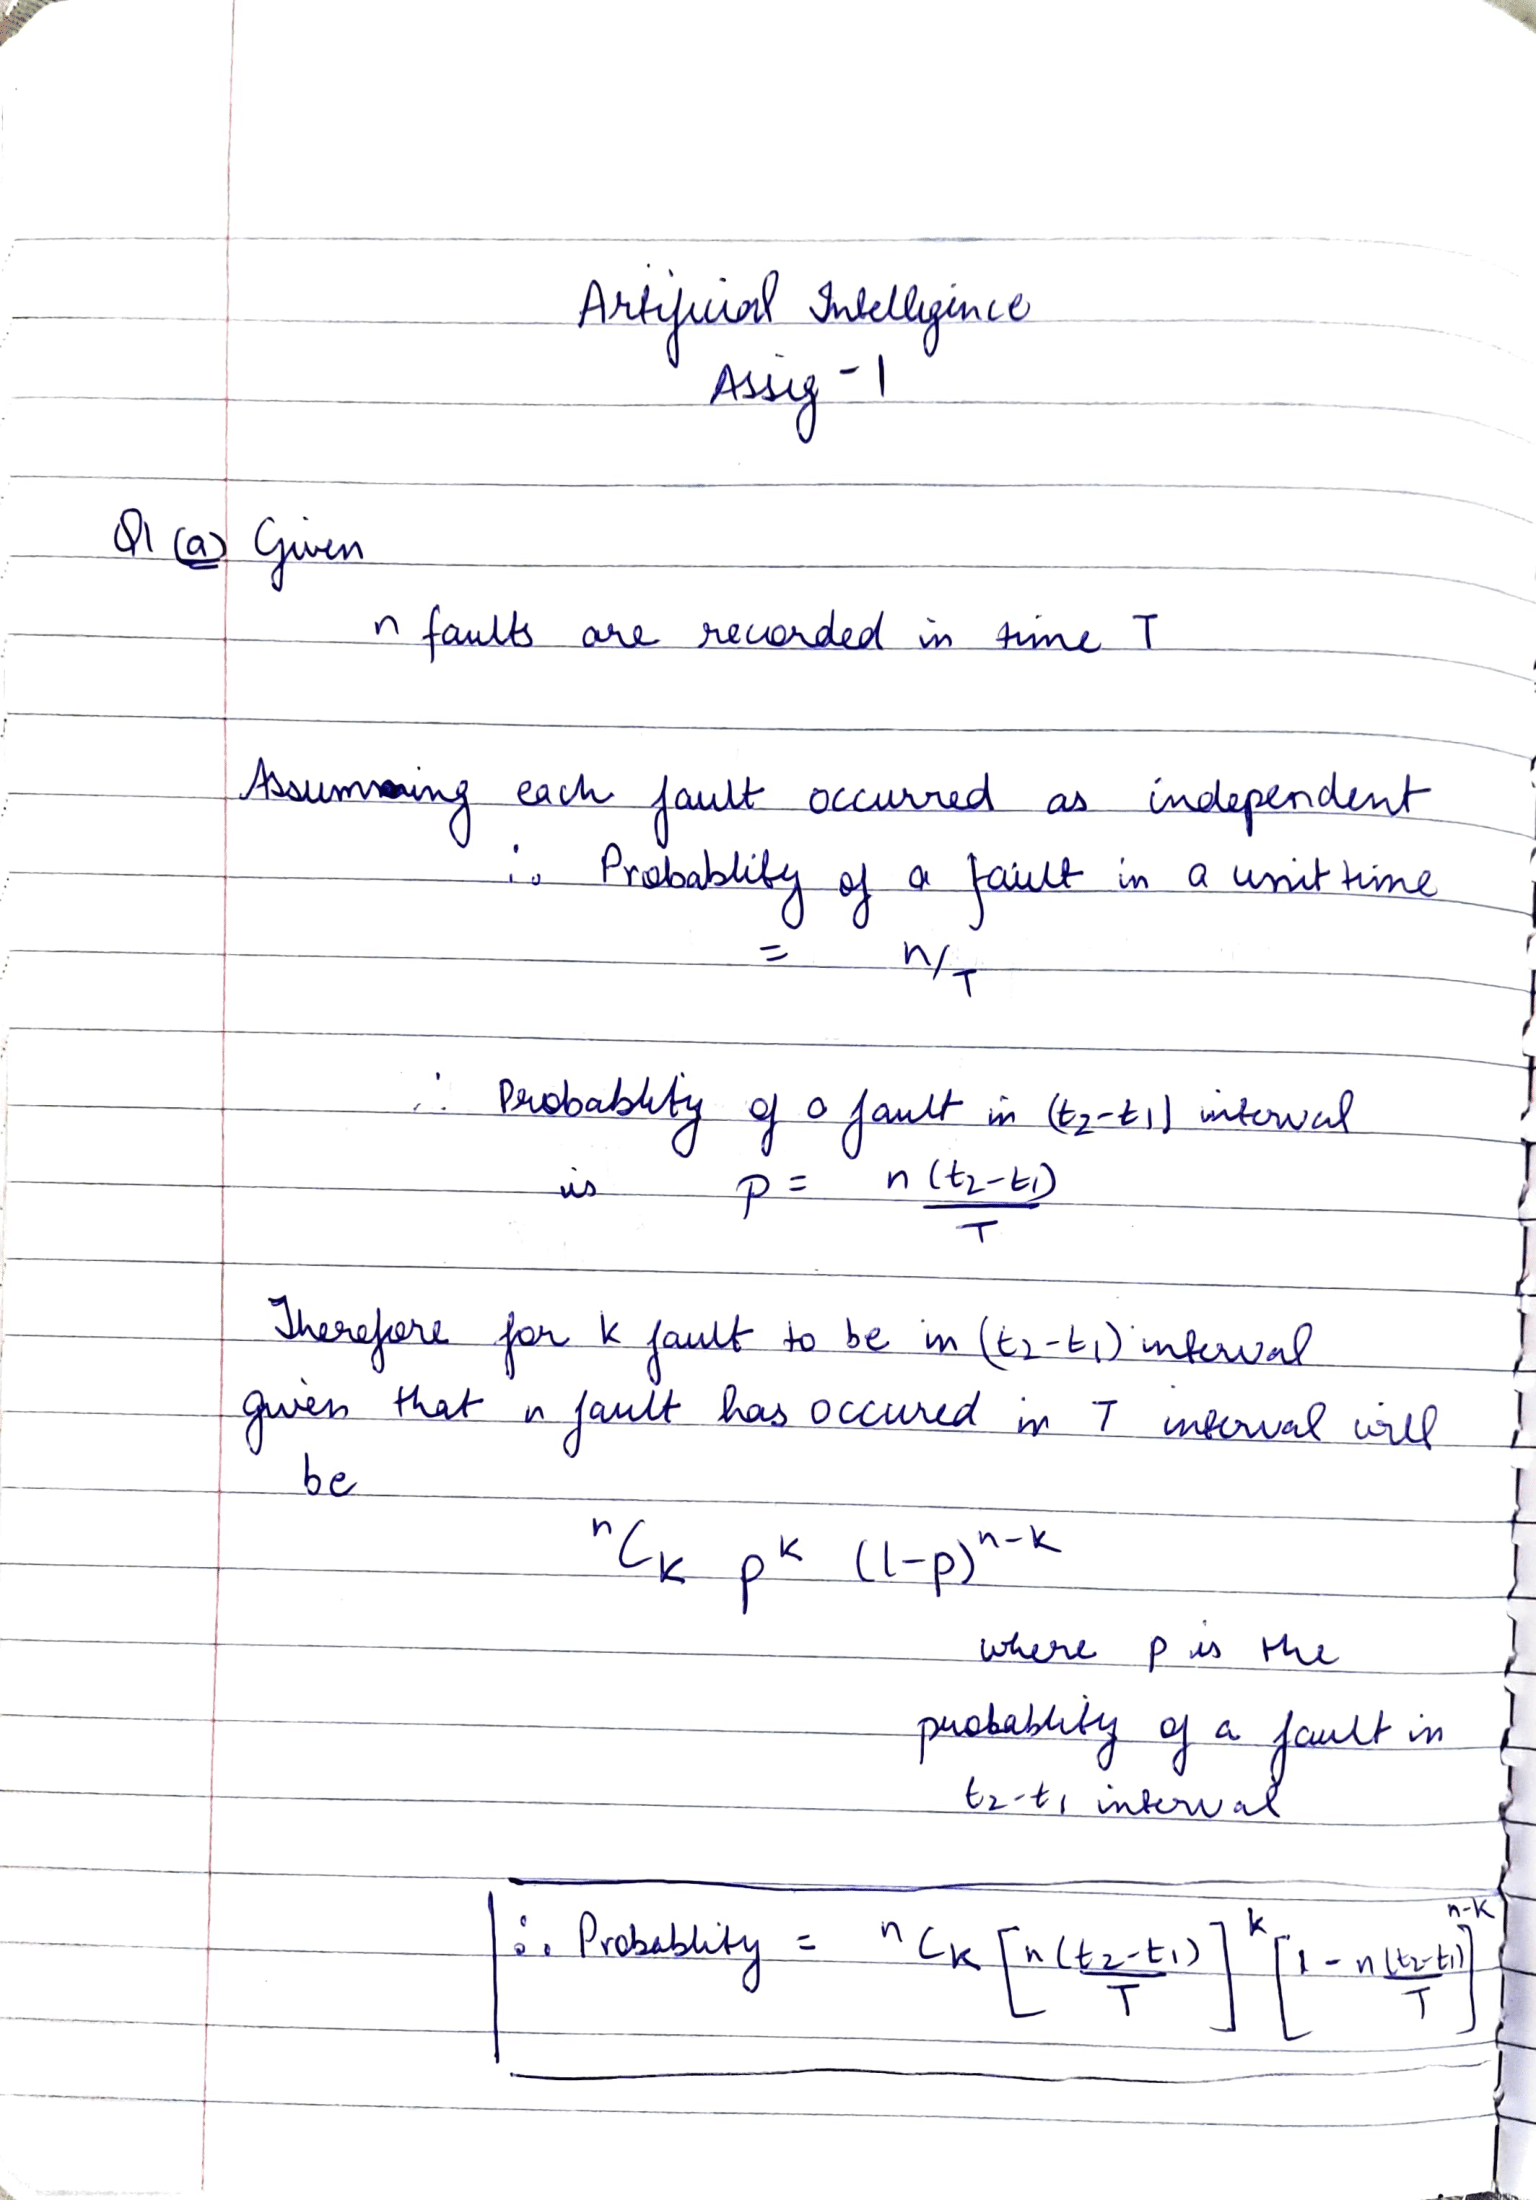 Artificial Intelligence
Assig - 1
Q1 (a) Given
n faults are recorded in time T
Assumming each fault occurred as independent
∴ Probablity of a fault in a unit time
= n/T
∴ Probablity of a fault in (t₂-t₁) interval
is p = n(t₂-t₁)/T
Therefore for k fault to be in (t₂-t₁) interval
given that n fault has occured in T interval will
be
ⁿCₖ pᵏ (1-p)ⁿ⁻ᵏ
where p is the
probablity of a fault in
t₂-t₁ interval
∴ Probablity = ⁿCₖ [n(t₂-t₁)/T]ᵏ [1 - n(t₂-t₁)/T]ⁿ⁻ᵏ